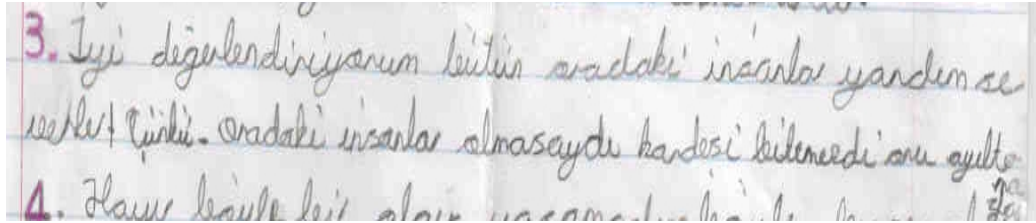 3. İyi değerlendiriyorum bütün oradaki insanlar yardım se
verler! Çünkü. Oradaki insanlar olmasaydı kardeşi bilemedi onu ayılt
4. Hayır böyle bir olay yaşamadım böyle